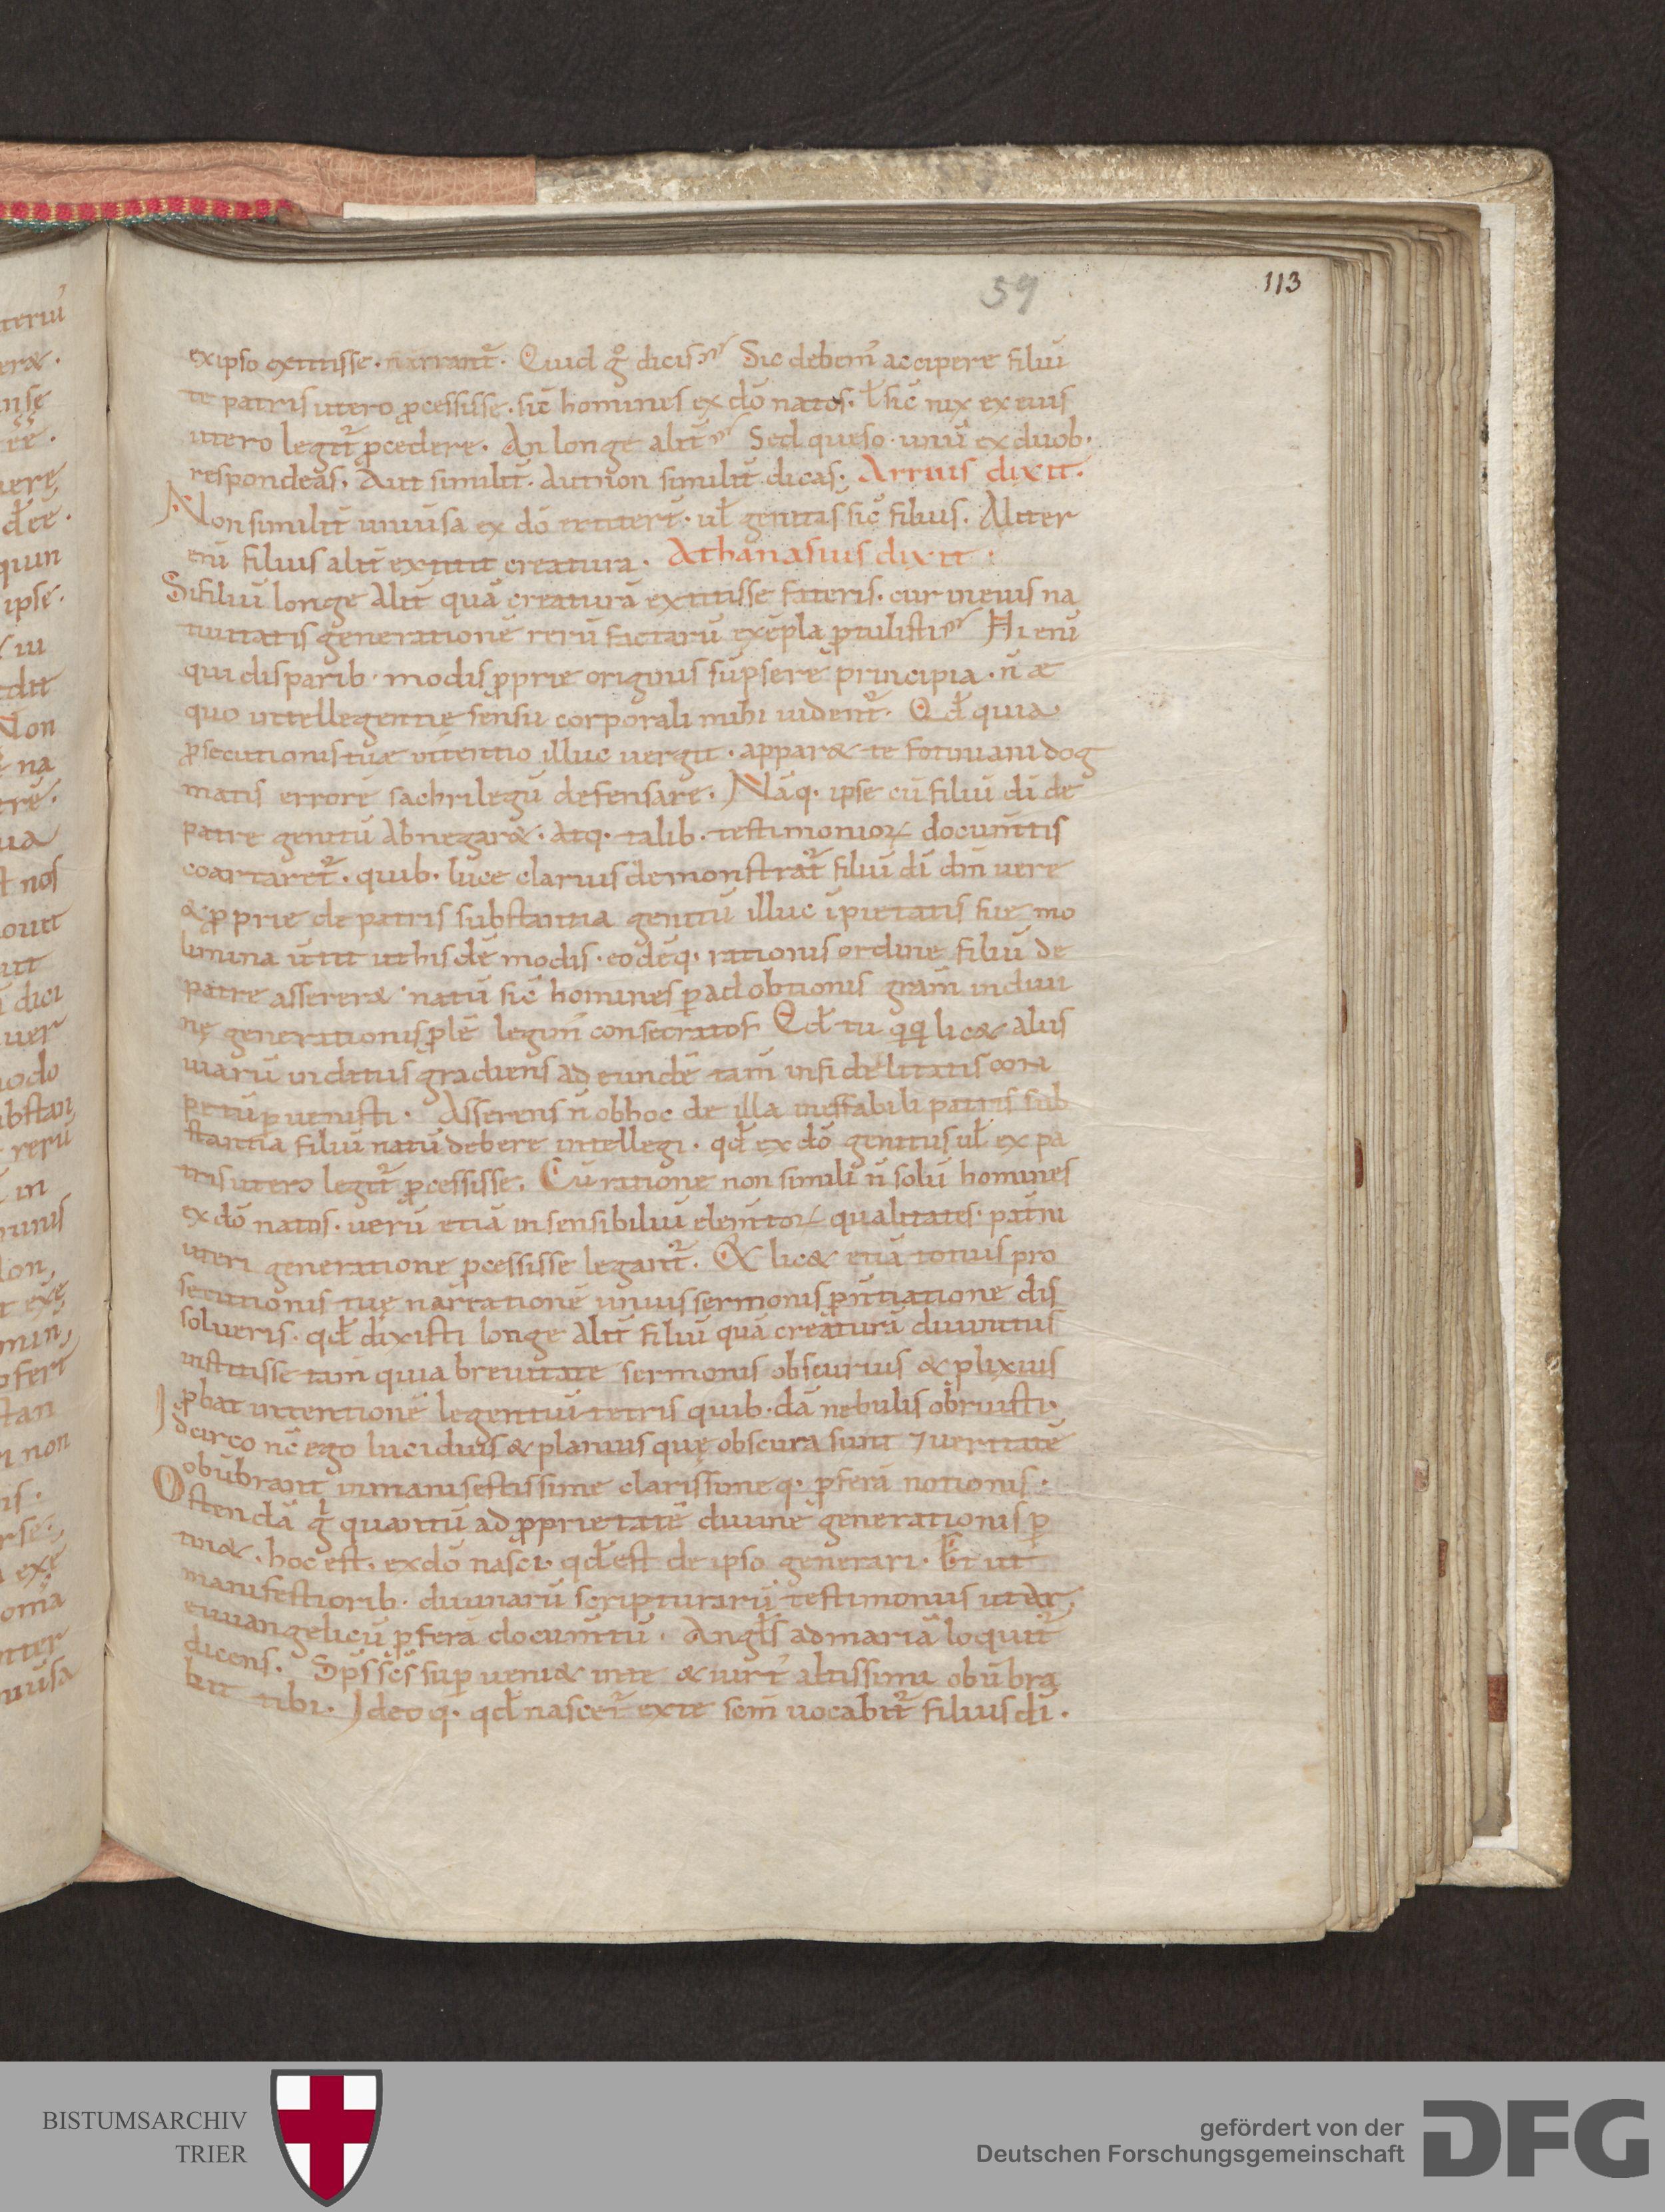 59
113
teriu
erę.
exipso extitisse. narrant᷑. Quid g̊ dicis? Sic debem᷒ accipere filiū
te patris utero ꝓcessisse. sic̄ homines ex dō natos. ł sic̄ nix ex eius
utero legit᷑ ꝓcedere. An longe alit̄? Sed queso. unū ex duob.
respondeas. Aut similit̄. aut non similit̄ dicas. Arrius dixit.
Non similit̄ uniūsa ex dō extiter̄. uł genitas sic̄ filius. Aliter
enī filius alit̄ extitit creatura. Athanasius dixit.
Si filiū longe alit̄ quā creaturā extitisse fateris. cur in eius na
tiuitatis generationē rerū factarū exēpla ꝓtulisti? Hi enī
qui disparib. modis ꝓprie originis sūpsere principia. n̄ æ
quo intellegentie sensu corporali mihi uident᷑. Qđ quia
ꝓsecutionis tuæ intentio illuc uergit. appar& te fotiniani dog
matis errorē sachrilegū defensare. Nāq. ipse cū filiū dī de
patre genitū abnegar&. atq. talib. testimonioꝝ docum̄tis
coartaret᷑. quib. luce clarius demonstrat᷑ filiū dī dn̄m uere
& ꝓprie de patris substantia genitū illuc īpietatis sue mo
limina ūtit ut hisdē modis. eodēq. rationis ordine filiū de
patre asserer& natū sic̄ homines ꝑ adobtionis gram̄ in diui
nę generationis ꝓlē legim᷒ consecratos. Qđ tu qq̄ lic& aliis
uiarū inditiis gradiens ad eundē tam̄ infidelitatis com
petū ꝑuenisti. Asserens n̄ obhoc de illa ineffabili patris sub
stantia filiū natū debere intellegi. qđ ex dō genitus uł ex pa
tris utero legit᷑ ꝓcessisse. Cū ratione non simili n̄ solū homines
ex dō natos. uerū etiā insensibiliū elem̄toꝝ qualitates. pat̄ni
uteri generatione ꝓcessisse legant᷑. Qđ lic& etiā totius pro
secutionis tuę narrationē unius sermonis ꝓnūtiatione dis
solueris. qđ dixisti longe alit̄ filiū quā creaturā diuinitus
instituisse tam̄ quia breuitate sermonis obscurius & ꝓlixius
ꝓbat intentionē legentiū tetris quib.dā nebulis obruisti.
Idcirco nc̄ ego lucidius & planius quę obscura sunt ⁊ ueritatē
obūbrant in manifestissime clarissimeq. ꝓferā notionis.
Ostendā g̊ quantū ad ꝓprietatē diuine generationis ꝑ
tin&. hoc est. ex dō nasci. qđ est de ipso generari. Et ut
manifestiorib. diuinarū scripturarū testimoniis utar.
euuangelicū ꝓferā docum̄tū. Angłs ad mariā loquit᷑
dicens. Sps̄ scs̄ suꝑueni& in te & uirt᷒ altissimi obūbra
bit tibi. Ideoq. qđ nascet᷑ ex te scm̄ uocabit᷑ filius dī.
BISTUMSARCHIV
TRIER
gefördert von der
Deutschen Forschungsgemeinschaft
DFG